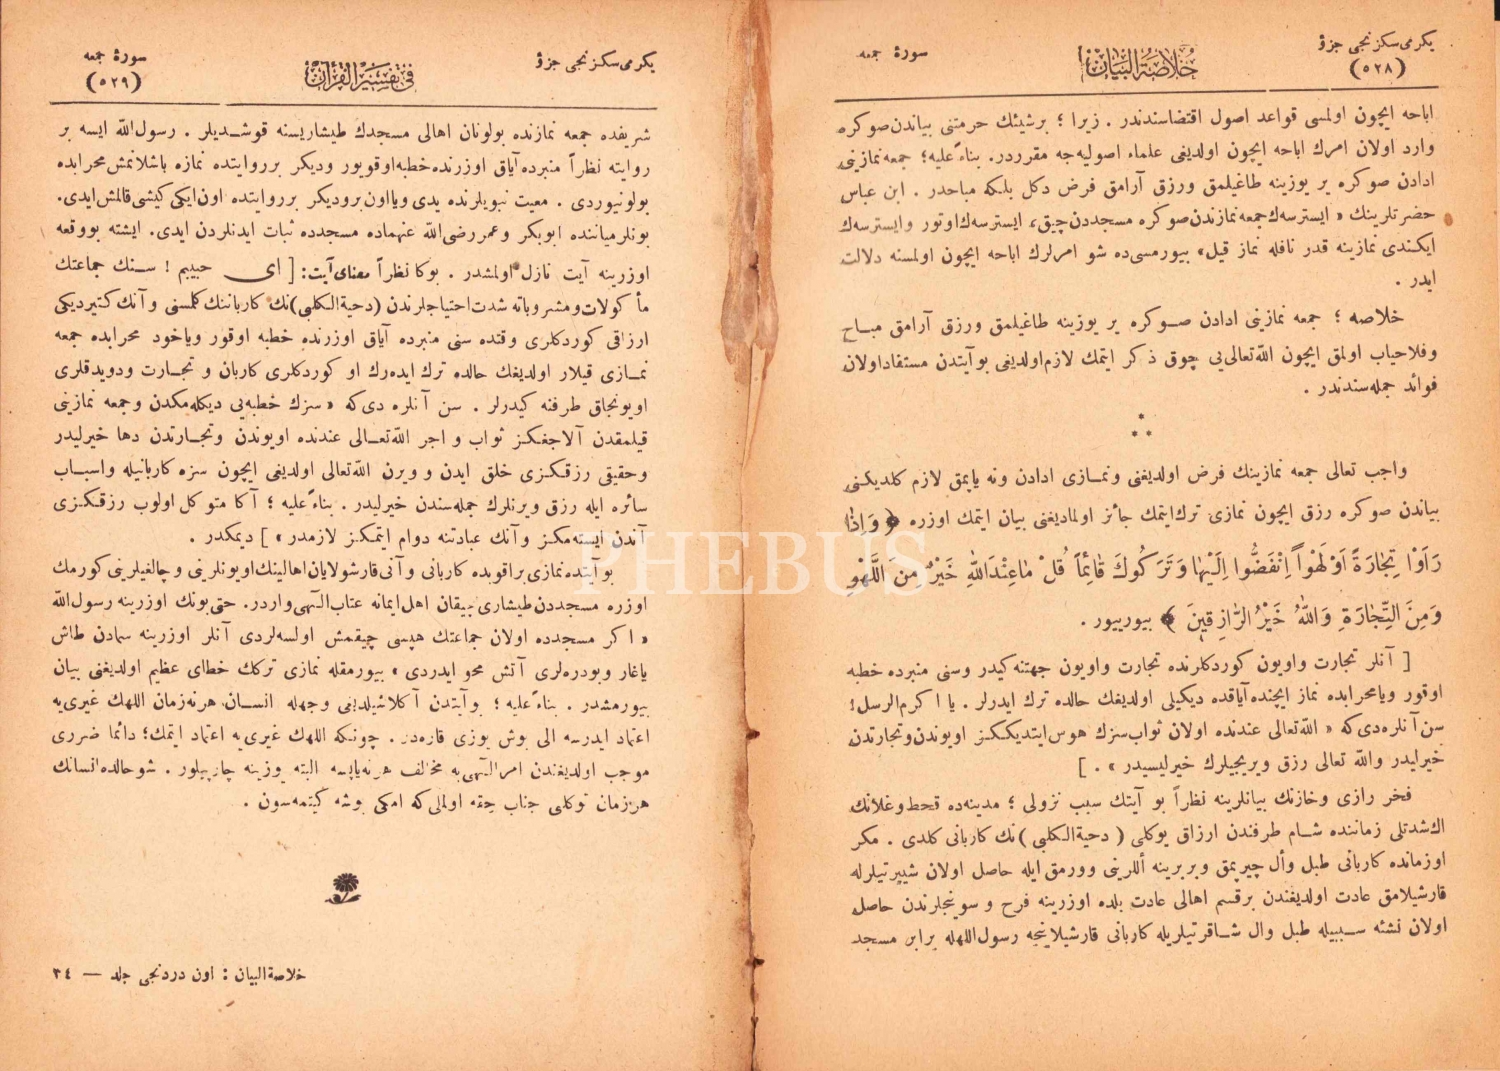 یكرمی سكزنجی جزؤ
(٥٢٨)
خُلاصَةُ البَيَان
سورهٔ جمعه
اباحه ایچون اولمسی قواعد اصول اقتضاسندندر . زیرا ؛ برشیئك حرمتنی بیاندن صوكره
وارد اولان امرك اباحه ایچون اولدیغی علماء اصولیه‌جه مقرردر. بناءً علیه؛ جمعه نمازینی
ادادن صوكره یر یوزینه طاغیلمق ورزق آرامق فرض دكل بلكه مباحدر . ابن عباس
حضرتلرینك « ایسترسه‌ك جمعه نمازندن صوكره مسجددن چیق، ایسترسه‌ك اوتور وایسترسه‌ك
ایكندی نمازینه قدر نافله نماز قیل» بیورمسی‌ده شو امرلرك اباحه ایچون اولمسنه دلالت
ایدر .
خلاصه ؛ جمعه نمازینی ادادن صوكره یر یوزینه طاغیلمق ورزق آرامق مباح
وفلاحیاب اولمق ایچون الله‌تعالی‌یی چوق ذكر ایتمك لازم‌اولدیغی بوآیتدن مستفاداولان
فوائد جمله‌سندندر .
*
* *
واجب تعالی جمعه نمازینك فرض اولدیغنی ونمازی ادادن ونه یاپمق لازم كلدیكنی
بیاندن صوكره رزق ایچون نمازی ترك‌ایتمك جائز اولمادیغنی بیان ایتمك اوزره ﴿ وَاِذٰا
رَاَوْا تِجٰارَةً اَوْ لَهْواً اِنْفَضُّوا اِلَيْهٰا وَتَرَكُوكَ قٰائِماً قُلْ مٰاعِنْدَاللهِ خَيْرٌ مِنَ اللَّهْوِ
وَمِنَ التِّجٰارَةِ وَاللهُ خَيْرُ الرّٰازِقينَ ﴾ بیوریيور .
[ آنلر تجارت واویون كوردكلرنده تجارت واویون جهتنه كیدر وسنی منبرده خطبه
اوقور ویامحرابده نماز ایچنده آیاقده دیكیلی اولدیغك حالده ترك ایدرلر . یا اكرم‌الرسل!
سن آنلره‌دی‌كه « الله‌تعالی عندنده اولان ثواب‌سزك هوس‌ایتدیككز اویوندن وتجارتدن
خیرلیدر والله تعالی رزق ویریجیلرك خیرلیسیدر » . ]
فخر رازی وخازنك بیانلرینه نظراً بو آیتك سبب نزولی ؛ مدینه‌ده قحط وغلانك
اك‌شدتلی زماننده شام طرفندن ارزاق یوكلی ( دحیة‌الكلبی )نك كاربانی كلدی . مكر
اوزمانده كاربانی طبل وأل چیرپمق وبربرینه أللرینی وورمق ایله حاصل اولان شیپرتیلرله
قارشیلامق عادت اولدیغندن برقسم اهالی عادت بلده اوزرینه فرح و سوینجلرندن حاصل
اولان نشئه سببیله طبل وال شاقرتیلریله كاربانی قارشیلاینجه رسول‌اللهله برابر مسجد
یكرمی سكزنجی جزؤ
فی تَفسيرِ القُرآن
سورهٔ جمعه
(٥٢٩)
شریفده جمعه نمازنده بولونان اهالی مسجدك طیشاریسنه قوشدیلر . رسول‌الله ایسه بر
روایته نظراً منبرده‌آیاق اوزرنده خطبه‌اوقویور ودیكر برروایتده نمازه باشلانمش‌محرابده
بولونیوردی . معیت نبویلرنده یدی ویااون‌برودیكر برروایتده اون‌ایكی كیشی‌قالمش‌ایدی.
بونلرمیاننده ابوبكر وعمر رضی‌الله عنهماده مسجدده ثبات ایدنلردن ایدی. ایشته بووقعه
اوزرینه آیت نازل اولمشدر . بوكا نظراً معنای‌آیت: [ ای حبیبم ! سنك جماعتك
مأكولات ومشروباته شدت احتیاجلرندن (دحیة‌الكلبی)نك كارباننك كلمسنی وآنك كتیردیكی
ارزاقی كوردكلری وقتده سنی منبرده آیاق اوزرنده خطبه اوقور ویاخود محرابده جمعه
نمازی قیلار اولدیغك حالده ترك ایده‌رك او كوردكلری كاربان و تجارت ودویدقلری
اویونجاق طرفنه كیدرلر . سن آنلره دی‌كه « سزك خطبه‌یی دیكله‌مكدن وجمعه نمازینی
قیلمقدن آلاجغكز ثواب و اجر الله‌تعالی عندنده اویوندن وتجارتدن دها خیرلیدر
وحقیقی رزقكزی خلق ایدن و ویرن الله‌تعالی اولدیغی ایچون سزه كاربانیله واسباب
سائره ایله رزق ویرنلرك جمله‌سندن خیرلیدر . بناءً علیه ؛ آكا متوكل اولوب رزقكزی
آندن ایسته‌مكز وآنك عبادتنه دوام ایتمكز لازمدر » ] دیمكدر .
بوآیتده نمازی براقوبده كاربانی وآنی قارشولایان اهالینك اویونلرینی وچالغیلرینی كورمك
اوزره مسجددن طیشاری چیقان اهل‌ایمانه عتاب‌الٓهی واردر. حتی‌بونك اوزرینه رسول‌الله
« اكر مسجدده اولان جماعتك هپسی چیقمش اولسه‌لردی آنلر اوزرینه سمادن طاش
یاغار وبودره‌لری آتش محو ایدردی » بیورمقله نمازی تركك خطای عظیم اولدیغنی بیان
بیورمشدر . بناءً علیه ؛ بوآیتدن آكلاشیلدیغی وجهله انسان هرنه‌زمان اللهك غیری‌یه
اعتماد ایدرسه الی بوش یوزی قاره‌در. چونكه اللهك غیری‌یه اعتماد ایتمك؛ دائما ضرری
موجب اولدیغندن امرالٓهی‌یه مخالف هرنه‌یاپسه البته یوزینه چارپیلور . شوحالده‌انسانك
هرزمان توكلی جناب حقه اولمالی‌كه امكی بوشه كیتمه‌سون .
خلاصة‌البیان : اون دردنجی جلد — ٣٤
PHEBUS